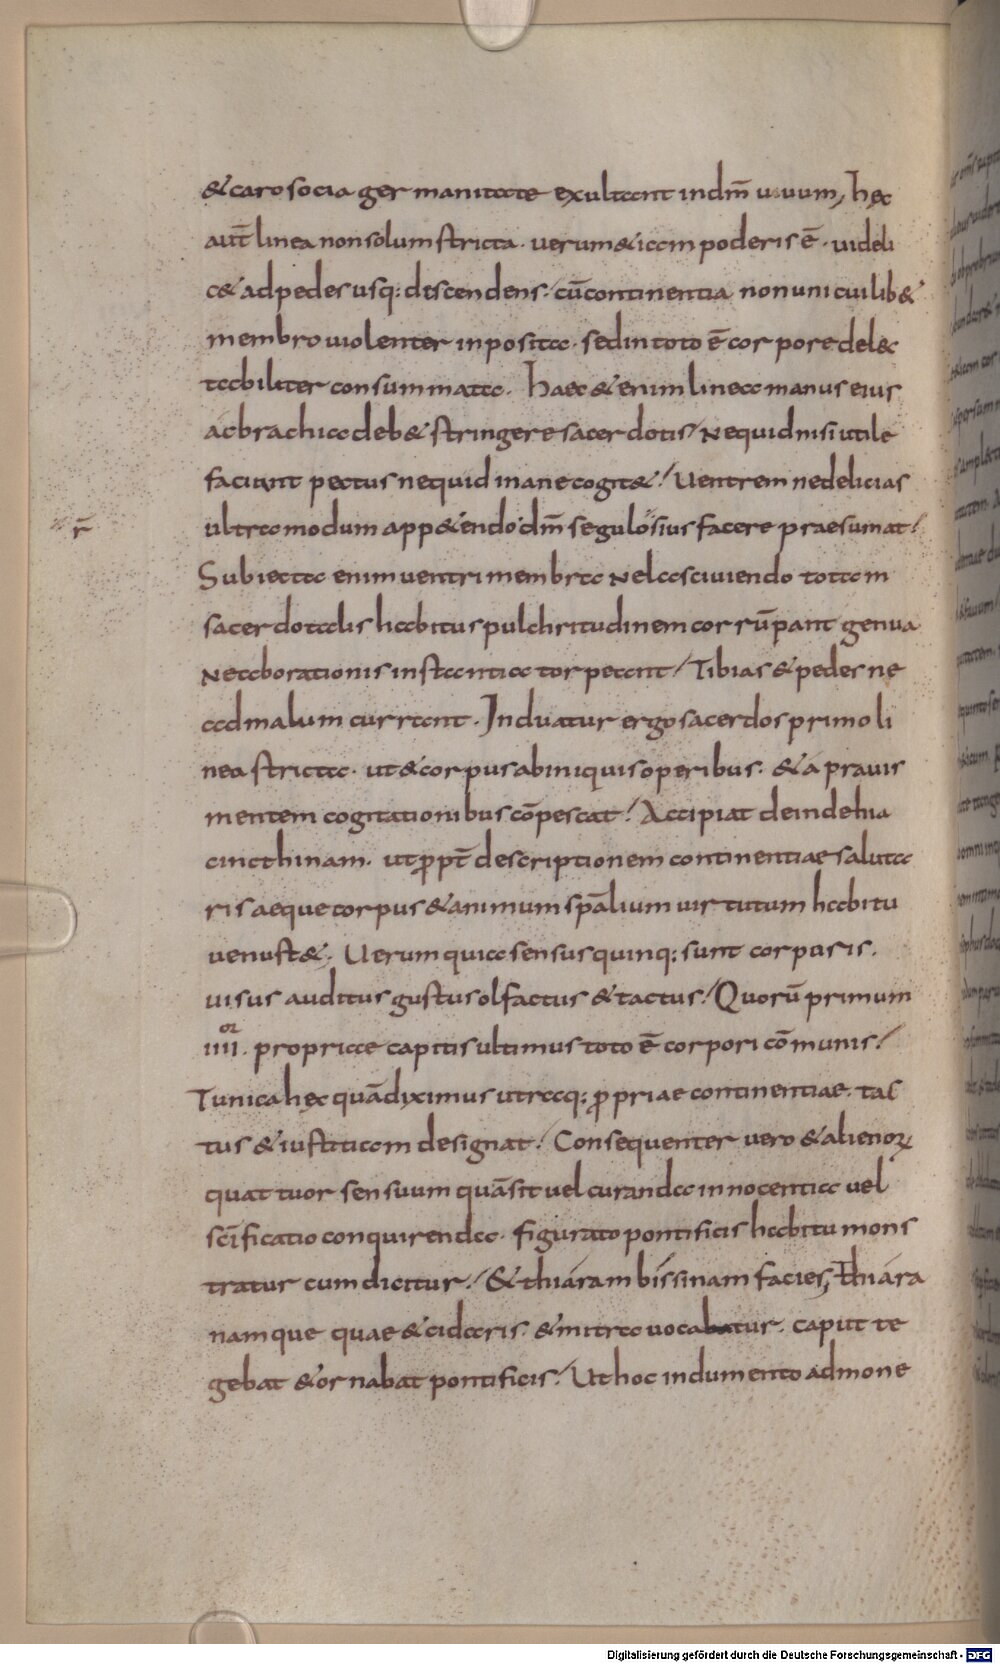 & caro socia germanitate exultent in dm̅ uiuum, hęc
aut̅ linea non solum stricta · uerum & iam poderis ē · uideli
c& ad pedes usq; descendens · cū continentia non uni cuilib&
membro uiolenter inposita · sed in toto ē corpore delec
tabiliter consummata · haec & enim linea manus eius
ac brachia deb& stringere sacerdotis / Nequid nisi utile
faciant pectus nequid inane cogit& / Uentrem ne delicias
ultra modum app&endo dm̅ se gulosius facere praesumat /
r̅
Subiecta enim uentri membra Ne lasciuiendo totam
sacerdotalis habitus pulchritudinem corrūpant genua
Ne ab orationis instantia torpeant / Tibias & pedes ne
ad malum currant · Induatur ergo sacerdos primo li
nea stricta · ut & corpus ab iniquis operibus · & a prauis
mentem cogitationibus cōpescat / Accipiat deinde hia
cincthinam · ut ꝓpt̅ descriptionem continentiae saluta
ris aeque corpus & animum spa̅lium uirtutum habitu
uenust& · Uerum quia sensus quinq; sunt corporis ·
uisus auditus gustus olfactus & tactus / Quorū primum
or
IIII · propriae capitis ultimus toto ē corpori cōmunis /
Tunica hęc quā diximus utraq; ꝓpriae continentiae · tac
tus & iustitiam designat / Consequenter uero & alienoꝝ
quattuor sensuum quā sit uel curanda innocentia uel
sc̅ificatio conquirenda · figurato pontificis habitu mons
tratur cum dicitur / & thiáram bíssinam facies, Thiára
namque quae & cidaris · & mitra uocabatur · caput te
gebat & ornabat pontificis / Ut hoc indumento admone
Digitalisierung gefördert durch die Deutsche Forschungsgemeinschaft - DFG